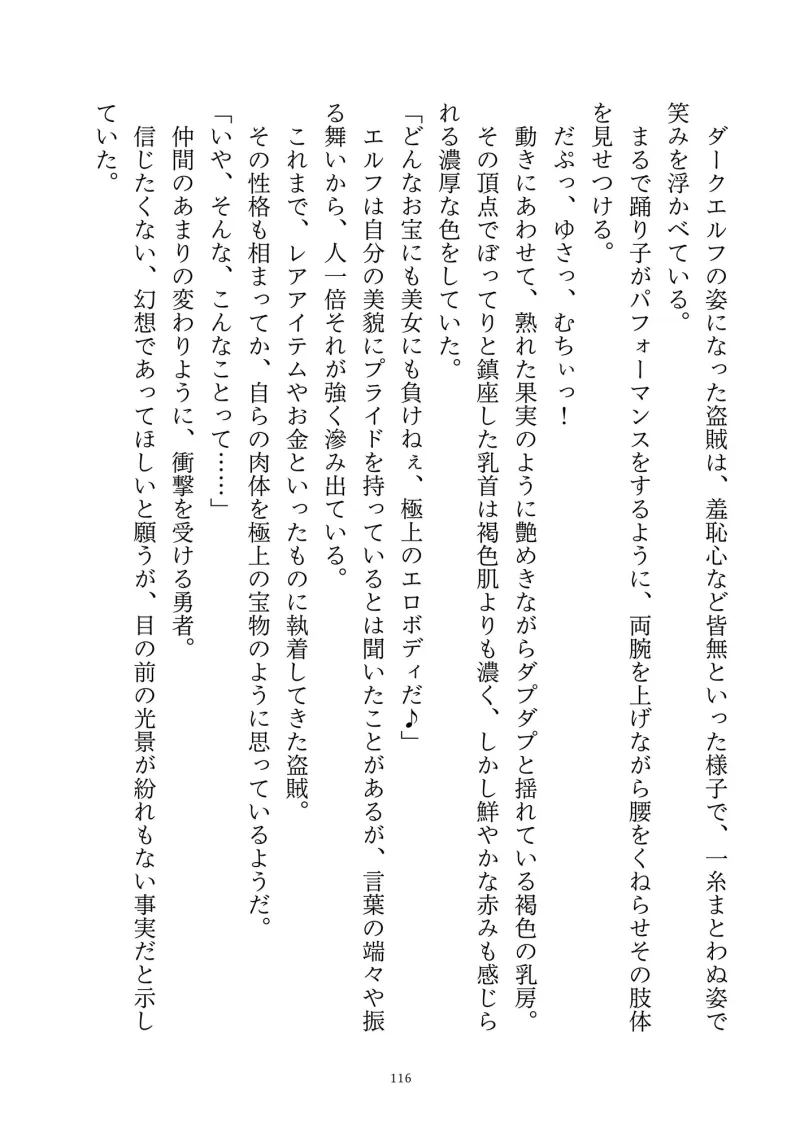 ダークエルフの姿になった盗賊は、羞恥心など皆無といった様子で、一糸まとわぬ姿で
笑みを浮かべている。
まるで踊り子がパフォーマンスをするように、両腕を上げながら腰をくねらせその肢体
を見せつける。
だぷっ、ゆさっ、むちぃっ！
動きにあわせて、熟れた果実のように艶めきながらダプダプと揺れている褐色の乳房。
その頂点でぼってりと鎮座した乳首は褐色肌よりも濃く、しかし鮮やかな赤みも感じら
れる濃厚な色をしていた。
「どんなお宝にも美女にも負けねぇ、極上のエロボディだ♪」
エルフは自分の美貌にプライドを持っているとは聞いたことがあるが、言葉の端々や振
る舞いから、人一倍それが強く滲み出ている。
これまで、レアアイテムやお金といったものに執着してきた盗賊。
その性格も相まってか、自らの肉体を極上の宝物のように思っているようだ。
「いや、そんな、こんなことって……」
仲間のあまりの変わりように、衝撃を受ける勇者。
信じたくない、幻想であってほしいと願うが、目の前の光景が紛れもない事実だと示し
ていた。
116